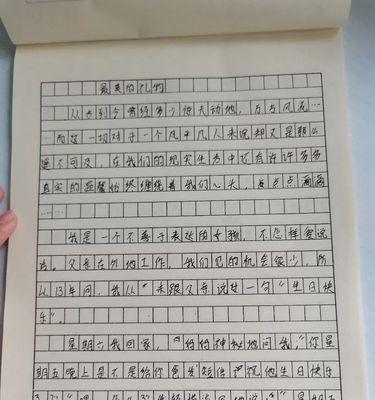 最美的礼物
从古到今曾经多少惊天动地，多少风花…
…而这一切对于一个凡平凡人来说却又是那么
遥不可及，在我们的现实生活中还有许许多多
真实的温馨始终缠绕着我们心头，点点滴滴
……
我是一个不善于表达的女孩，不怎样爱说
话。父亲在外地工作，我们见的机会很少，所
以13年间，我从来没跟父亲说过一句“生日快
乐”。
星期六我回家，妈妈神秘地问我，“你星
期五晚上是不是给你爸发短信祝他生日快乐